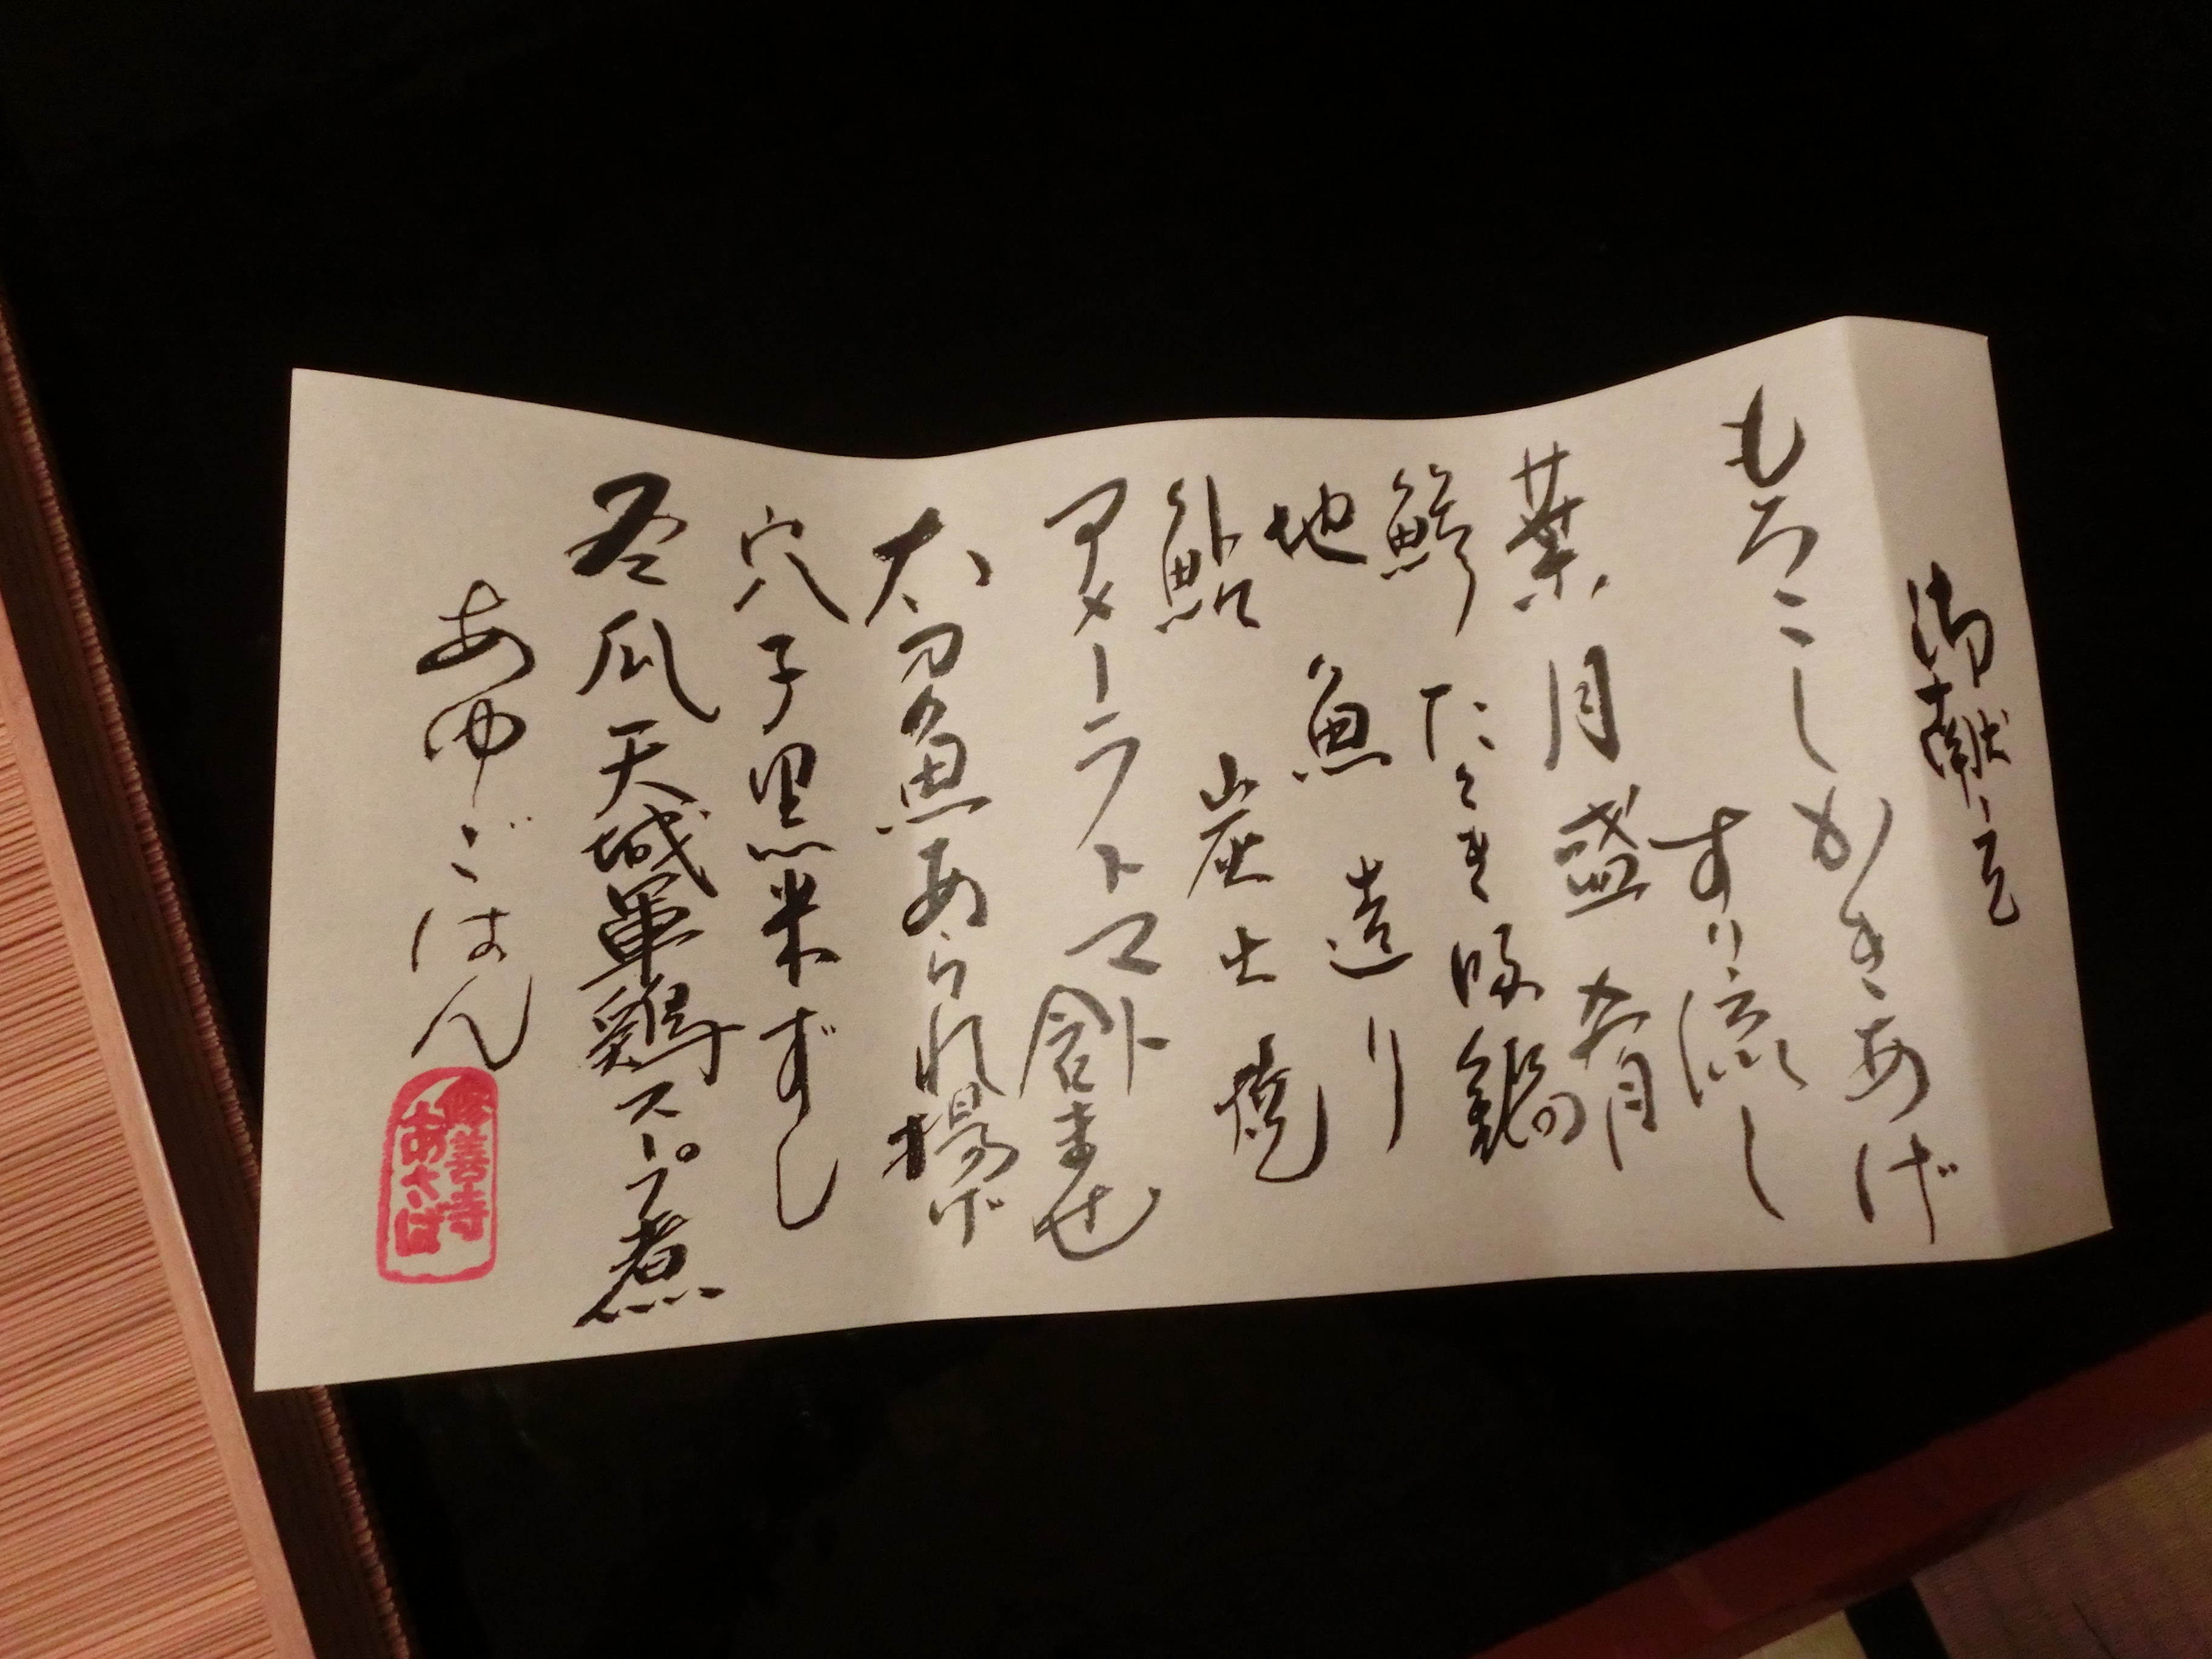 御献立
もろこしかきあげ
すり流し
葉月盛肴
鯵たゝき
地魚造り
鮎炭火焼
アメーラトマト含ませ
太刀魚あられ揚げ
穴子黒米ずし
冬瓜天城軍鶏スープ煮
あゆごはん
修善寺
あさば